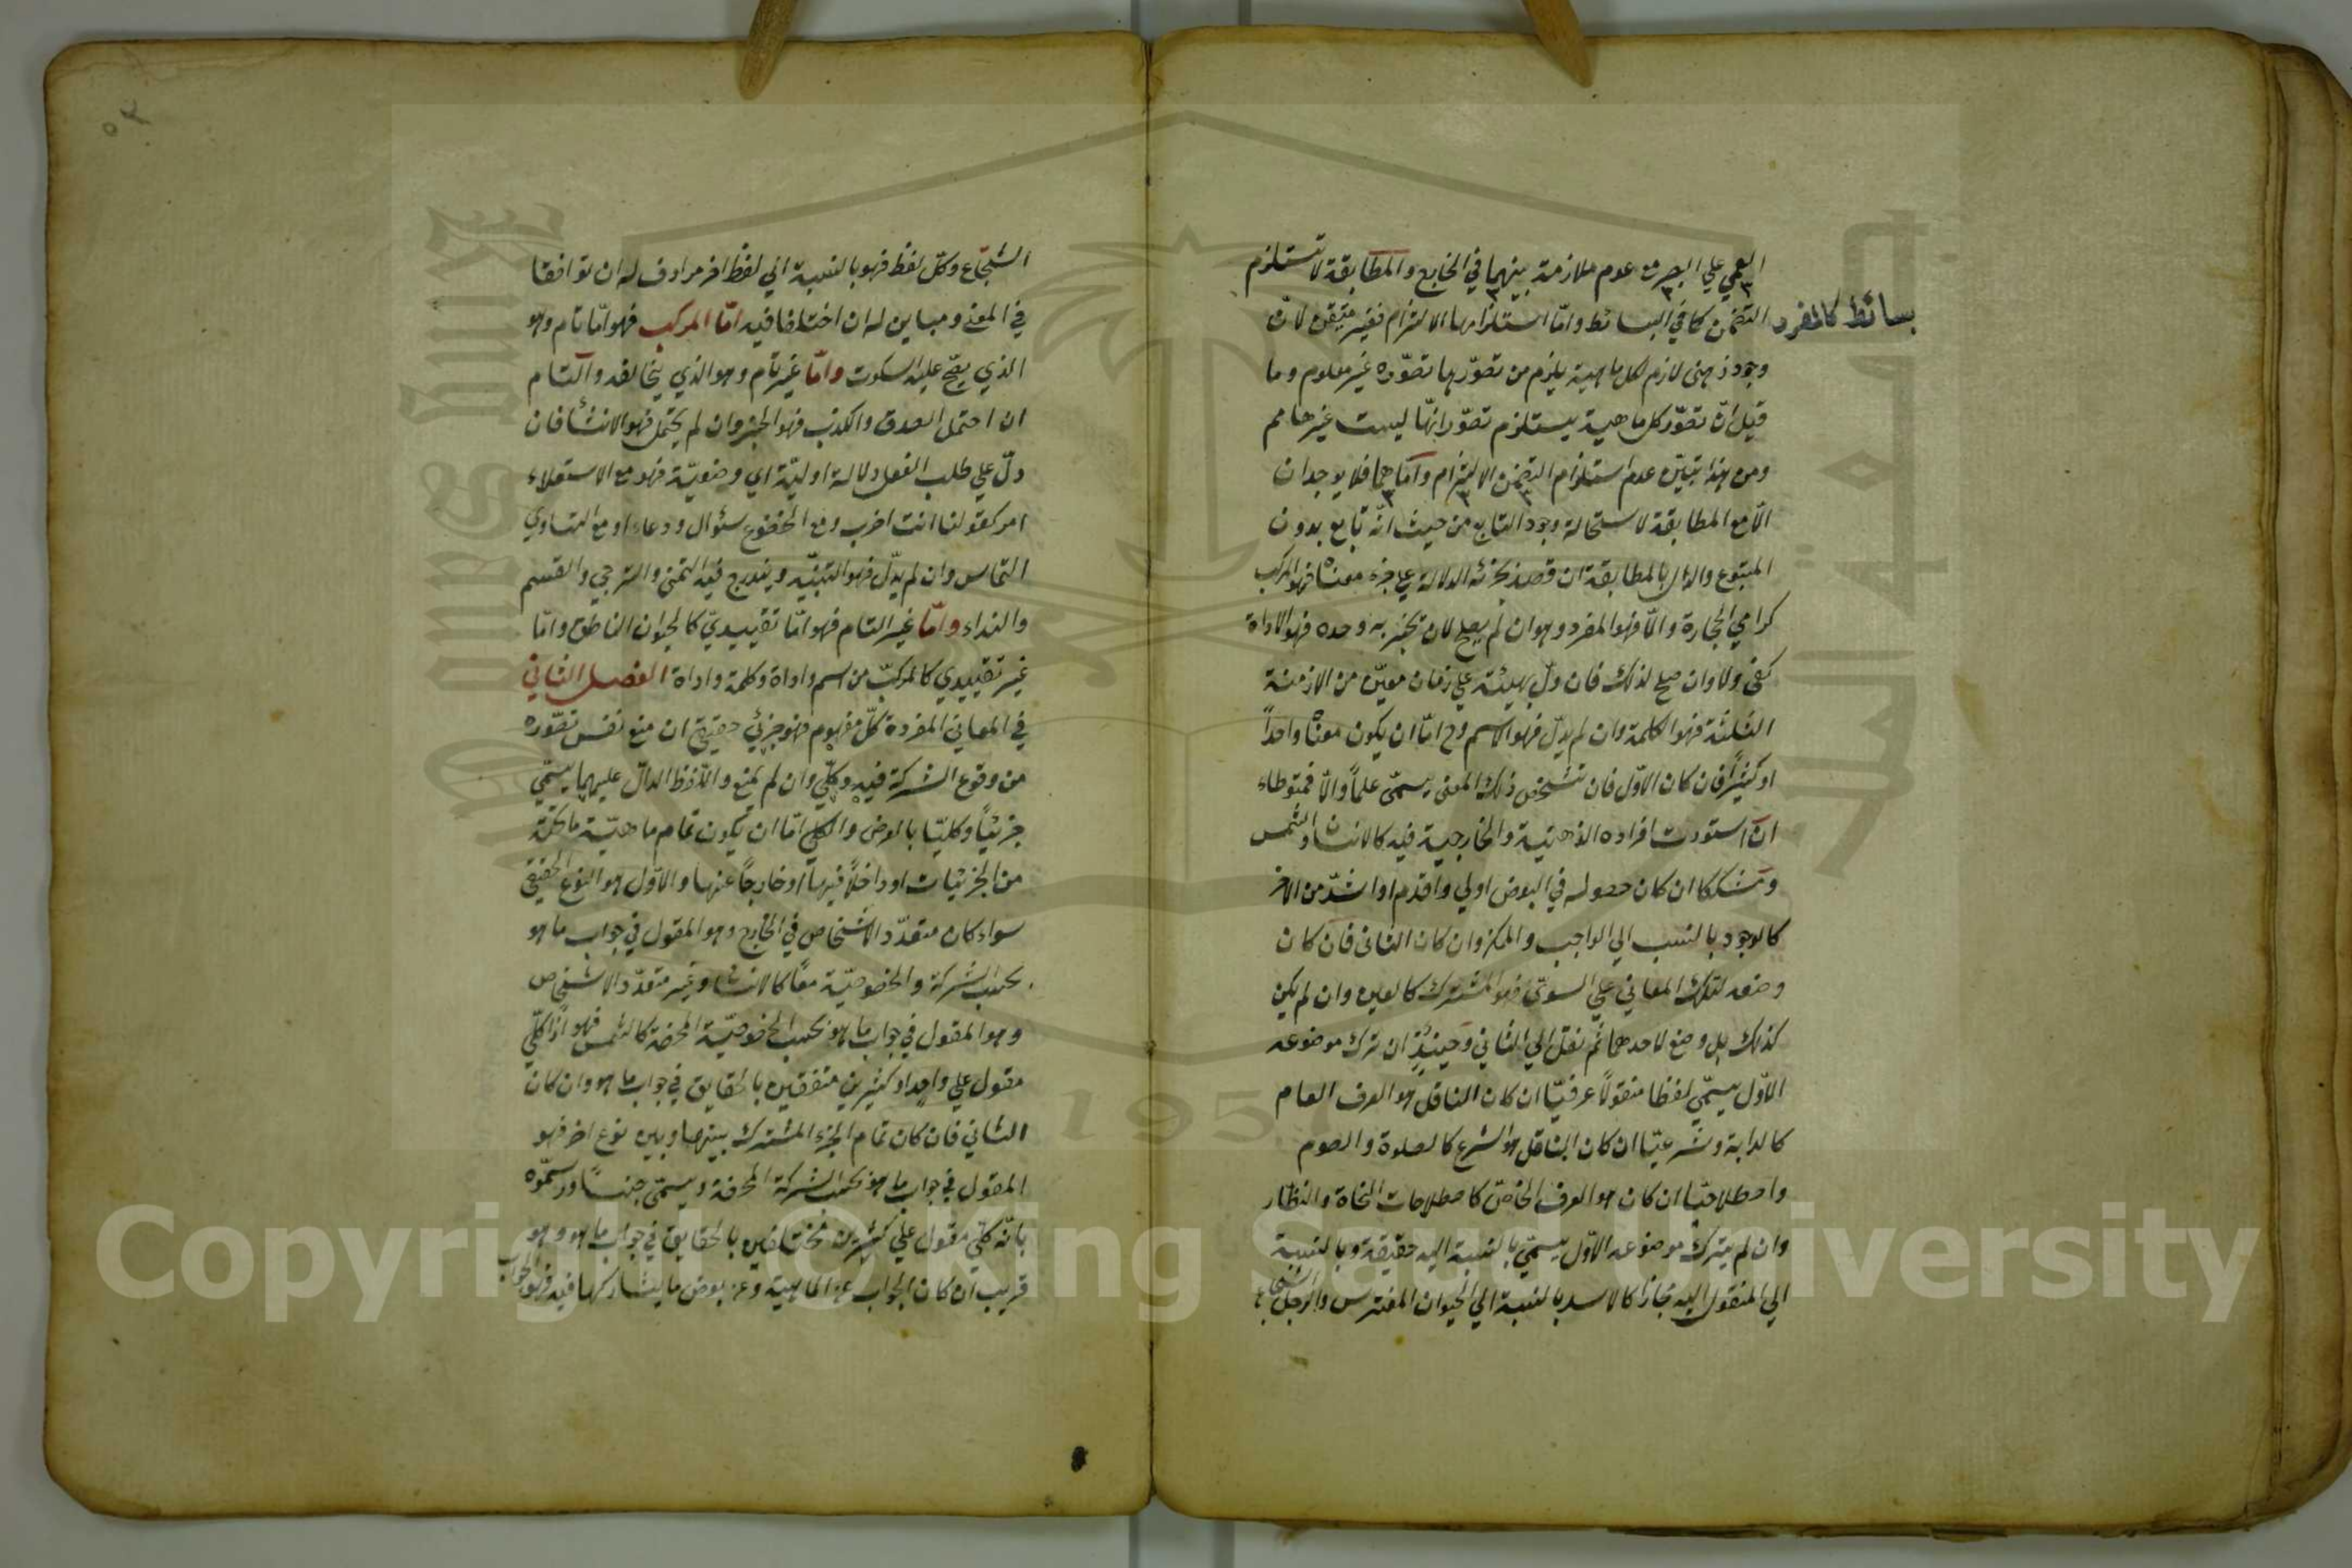 العمي علي البصر مع عدم ملازمة بينهما في الخارج والمطابقة لا تستلزم
التضمن كما في البسائط واما استلزامها الالتزام فغير متيقن لان
بسائط كالمفرد
وجود ذهني لازم لكل ماهية يلزم من تصورها تصوره غير معلوم وما
قيل ان تصور كل ماهية يستلزم تصور انها ليست غيرها مم
ومن هذا تبين عدم استلزام التضمن الالتزام واما هما فلا يوجدان
الا مع المطابقة لاستحالة وجود التابع من حيث انه تابع بدون
المتبوع والدال بالمطابقة ان قصد بجزئه الدلالة علي جزء معناه فهو المركب
كرامي الحجارة والا فهو المفرد وهو ان لم يصلح لان يخبر به وحده فهو الاداة
كفي ولا وان صلح لذلك فان دل بهيئته علي زمان معين من الازمنة
الثلثة فهو الكلمة وان لم يدل فهو الاسم وح اما ان يكون معناه واحداً
او كثيراً فان كان الاول فان تشخص ذلك المعنى يسمى علماً والا فمتوطاء
ان استوت افراده الذهنية والخارجية فيه كالانسان والشمس
ومشككا ان كان حصوله في البعض اولي واقدم او اشد من الاخر
كالوجود بالنسب الي الواجب والممكن وان كان الثاني فان كان
وضعه لتلك المعاني علي السوي فهو المشترك كالعين وان لم يكن
كذلك بل وضع لاحدهما ثم نقل الي الثاني وحينئذ ان ترك موضوعه
الاول يسمي لفظا منقولاً عرفيّا ان كان الناقل هو العرف العام
كالدابة وشرعيّا ان كان الناقل هو الشرع كالصلوة والصوم
واصطلاحيّا ان كان هو العرف الخاص كاصطلاحات النحاة والنظار
وان لم يترك موضوعه الاول يسمي بالنسبة اليه حقيقة وبالنسبة
الي المنقول اليه مجازا كالاسد بالنسبة الي الحيوان المفترس والرجل الشجاع
الشجاع وكل لفظ فهو بالنسبة الي لفظ اخر مرادف له ان توافقا
في المعنى ومباين له ان اختلفا فيه اما المركب فهو اما تام وهو
الذي يصح عليه السكوت واما غير تام وهو الذي يخالفه والتام
ان احتمل الصدق والكذب فهو الخبر وان لم يحتمل فهو الانشأ فان
دل علي طلب الفعل دلالة اولية اي وضعية فهو مع الاستعلاء
امر كقولنا انت اضرب ومع الخضوع سئوال ودعاء او مع التساوي
التماس وان لم يدل فهو التنبيه ويندرج فيه التمني والترجي والقسم
والنداء واما غير التام فهو اما تقييدي كالحيوان الناطق واما
غير تقييدي كالمركب من اسم واداة وكلمة واداة الفصل الثاني
في المعاني المفردة كل مفهوم فهو جزئي حقيقي ان منع نفس تصوره
من وقوع الشركة فيه وكلي وان لم يمنع واللفظ الدال عليهما يسمي
جزئياً وكليّا بالعرض والكلي اما ان يكون تمام ماهية ما تحته
من الجزئيات او داخلاً فيها او خارجاً عنها والاول هو النوع الحقيقي
سواء كان متعدد الاشخاص في الخارج وهو المقول في جواب ما هو
بحسب الشركة والخصوصية معًا كالانسان او غير متعدد الاشخاص
وهو المقول في جواب ما هو بحسب الخصوصية المحضة كالشمس فهو اذًا كلي
مقول علي واحد او كثيرين متفقين بالحقايق في جواب ما هو وان كان
الثاني فان كان تمام الجزء المشترك بينها وبين نوع اخر فهو
المقول في جواب ما هو بحسب الشركة المحضة ويسمي جنساً ورسموه
بانه كلي مقول علي كثيرين مختلفين بالحقايق في جواب ما هو وهو
قريب ان كان الجواب عن الماهية وعن بعض ما يشاركها فيه هو الجواب
Copyright © King Saud University
1957